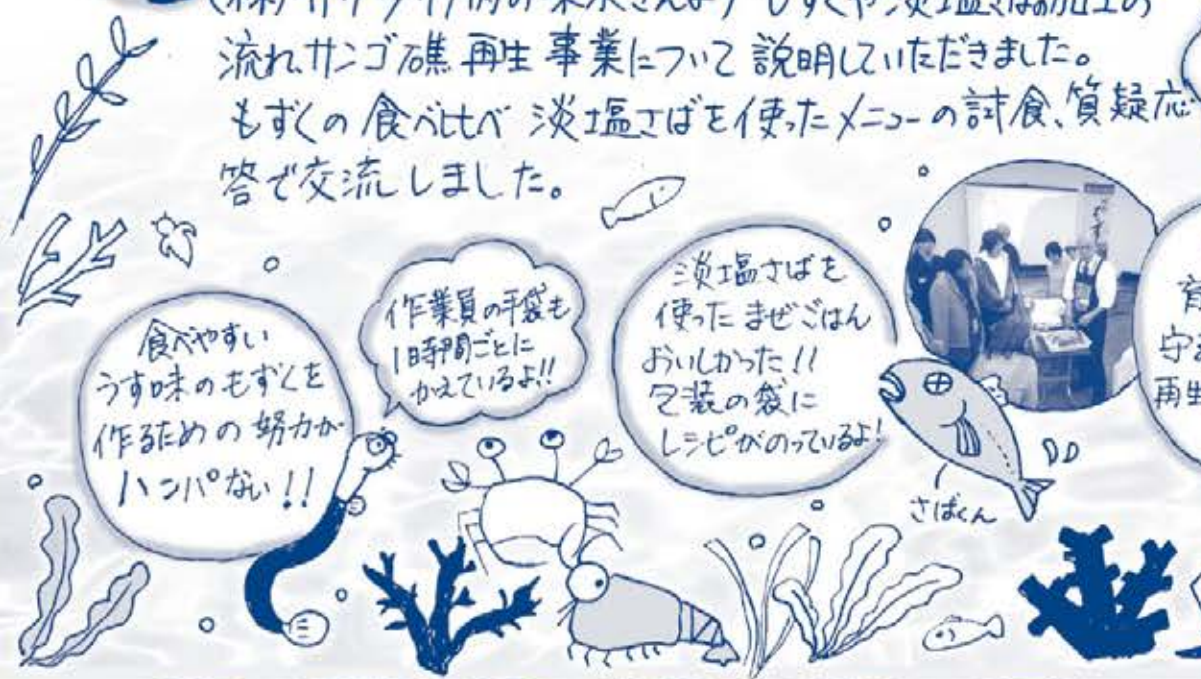 流れ、サンゴ礁再生事業について説明していただきました。
もずくの食べ比べ 淡塩さばを使ったメニューの試食、質疑応
答で交流しました。
食べやすい
うす味のもずくを
作るための努力が
ハンパない!!
作業員の手袋も
1時間ごとに
かえているよ!!
淡塩さばを
使ったまぜごはん
おいしかった!!
包装の袋に
レシピがのっているよ!
さばくん
再生